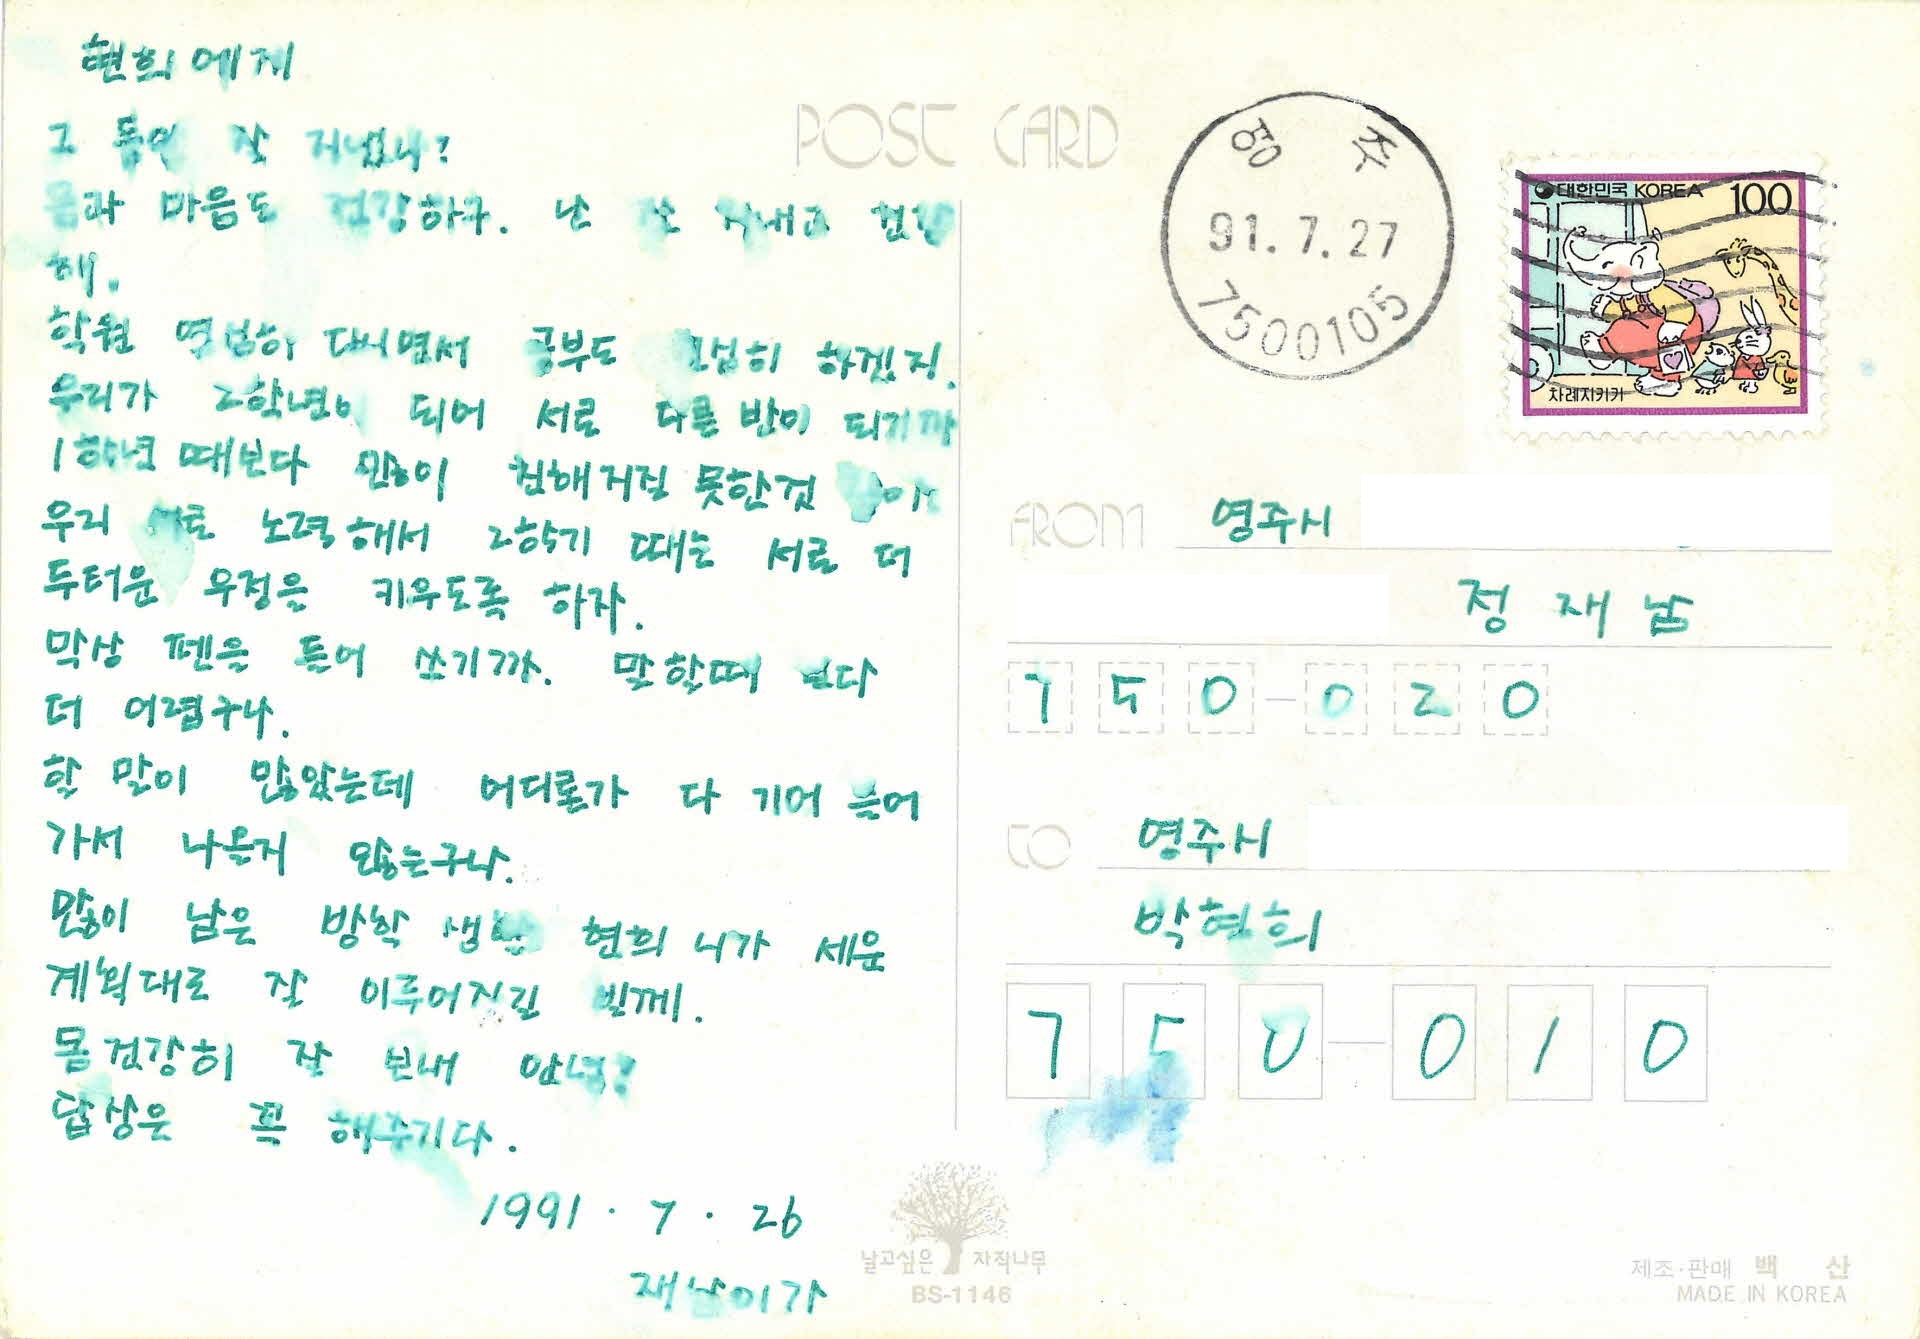 현희에게
그 동안 잘 지냈니?
몸과 마음도 건강하구. 난 잘 지내고 건강
해.
학원 열심히 다니면서 공부도 열심히 하겠지.
우리가 2학년이 되어 서로 다른 반이 되기까
1학년 때보다 많이 친해지질 못한것
우리 서로 노력해서 2학기 때는 서로 더
두터운 우정을 키우도록 하자.
막상 펜을 들어 쓰기까. 말할때 보다
더 어렵구나.
할 말이 많았는데 어디론가 다 기어 들어
가서 나올지 않는구나.
많이 남은 방학 생활 현희 니가 세운
계획대로 잘 이루어지길 빌께.
몸 건강히 잘 보내 안녕?
답장은 꼭 해주기다.
1991. 7. 26
재남이가
POST CARD
영 주
91.7.27
7500105
대한민국 KOREA 100
차례지키기
FROM 영주시
정 재 남
750-020
TO 영주시
박현희
750-010
날고싶은 자작나무
BS-1146
제조·판매 백 산
MADE IN KOREA